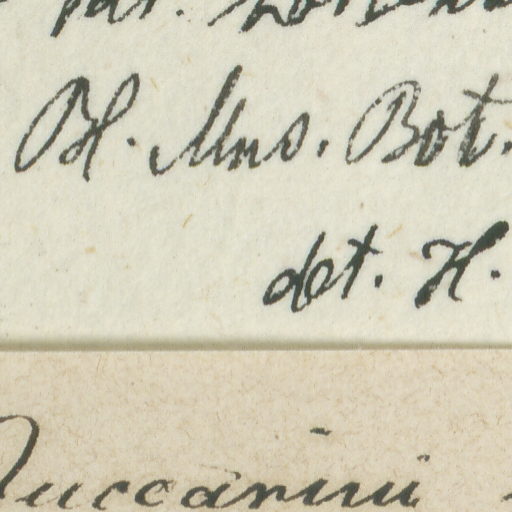 Bl. Mus. Bot.
det. H.
Zuccarini